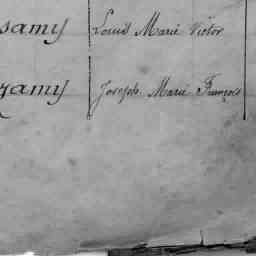 samy Louis Marie Victor
zamy Joseph Marie François